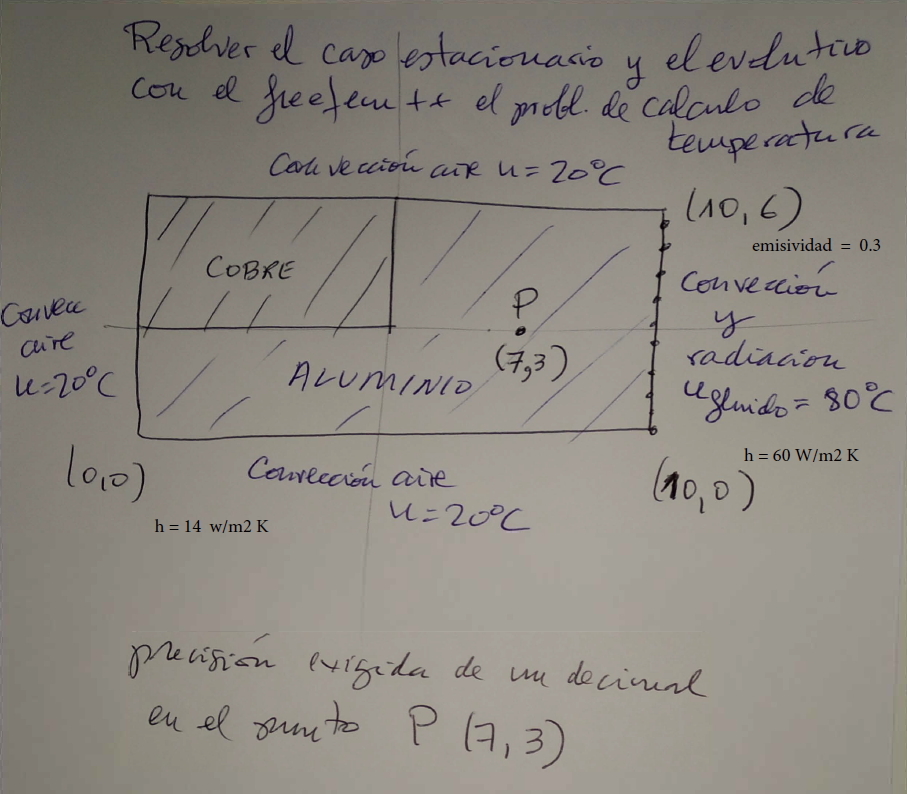 Resolver el caso estacionario y el evolutivo
con el freefem ++ el probl. de calculo de
temperatura
Convección aire u = 20°C
(10, 6)
emisividad = 0.3
COBRE
Convección
y
radiacion
u fluido = 80°C
Convecc
aire
u = 20°C
P
(7,3)
ALUMINIO
h = 60 W/m2 K
(0,0)
Convección aire
u = 20°C
(10,0)
h = 14 w/m2 K
precisión exigida de un decimal
en el punto P (7, 3)